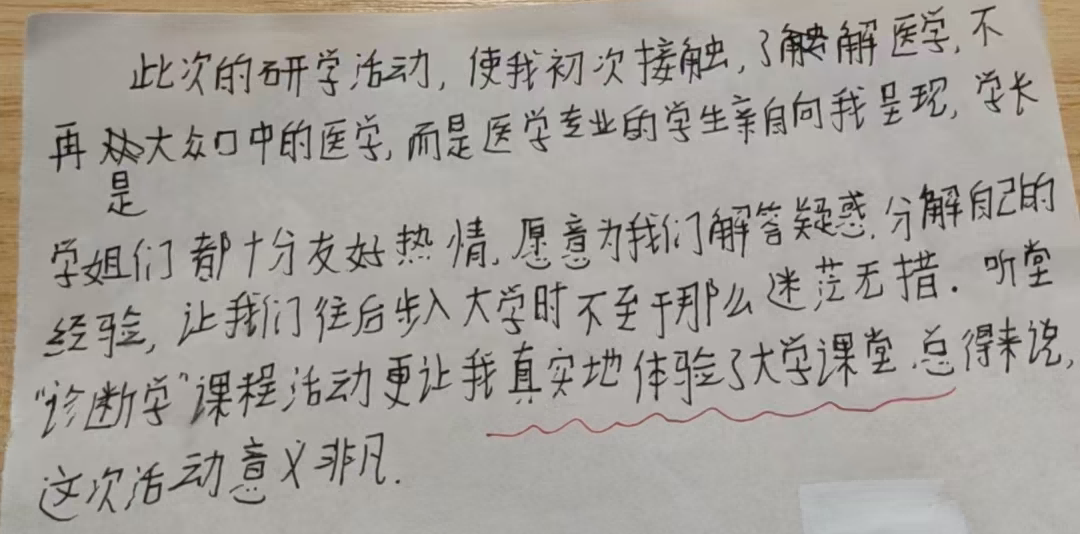 此次的研学活动，使我初次接触，了解医学，不
再是大众口中的医学，而是医学专业的学生亲自向我呈现，学长
学姐们都十分友好热情，愿意为我们解答疑惑，分解自己的
经验，让我们往后步入大学时不至于那么迷茫无措．听堂
“诊断学”课程活动更让我真实地体验了大学课堂．总得来说，
这次活动意义非凡．